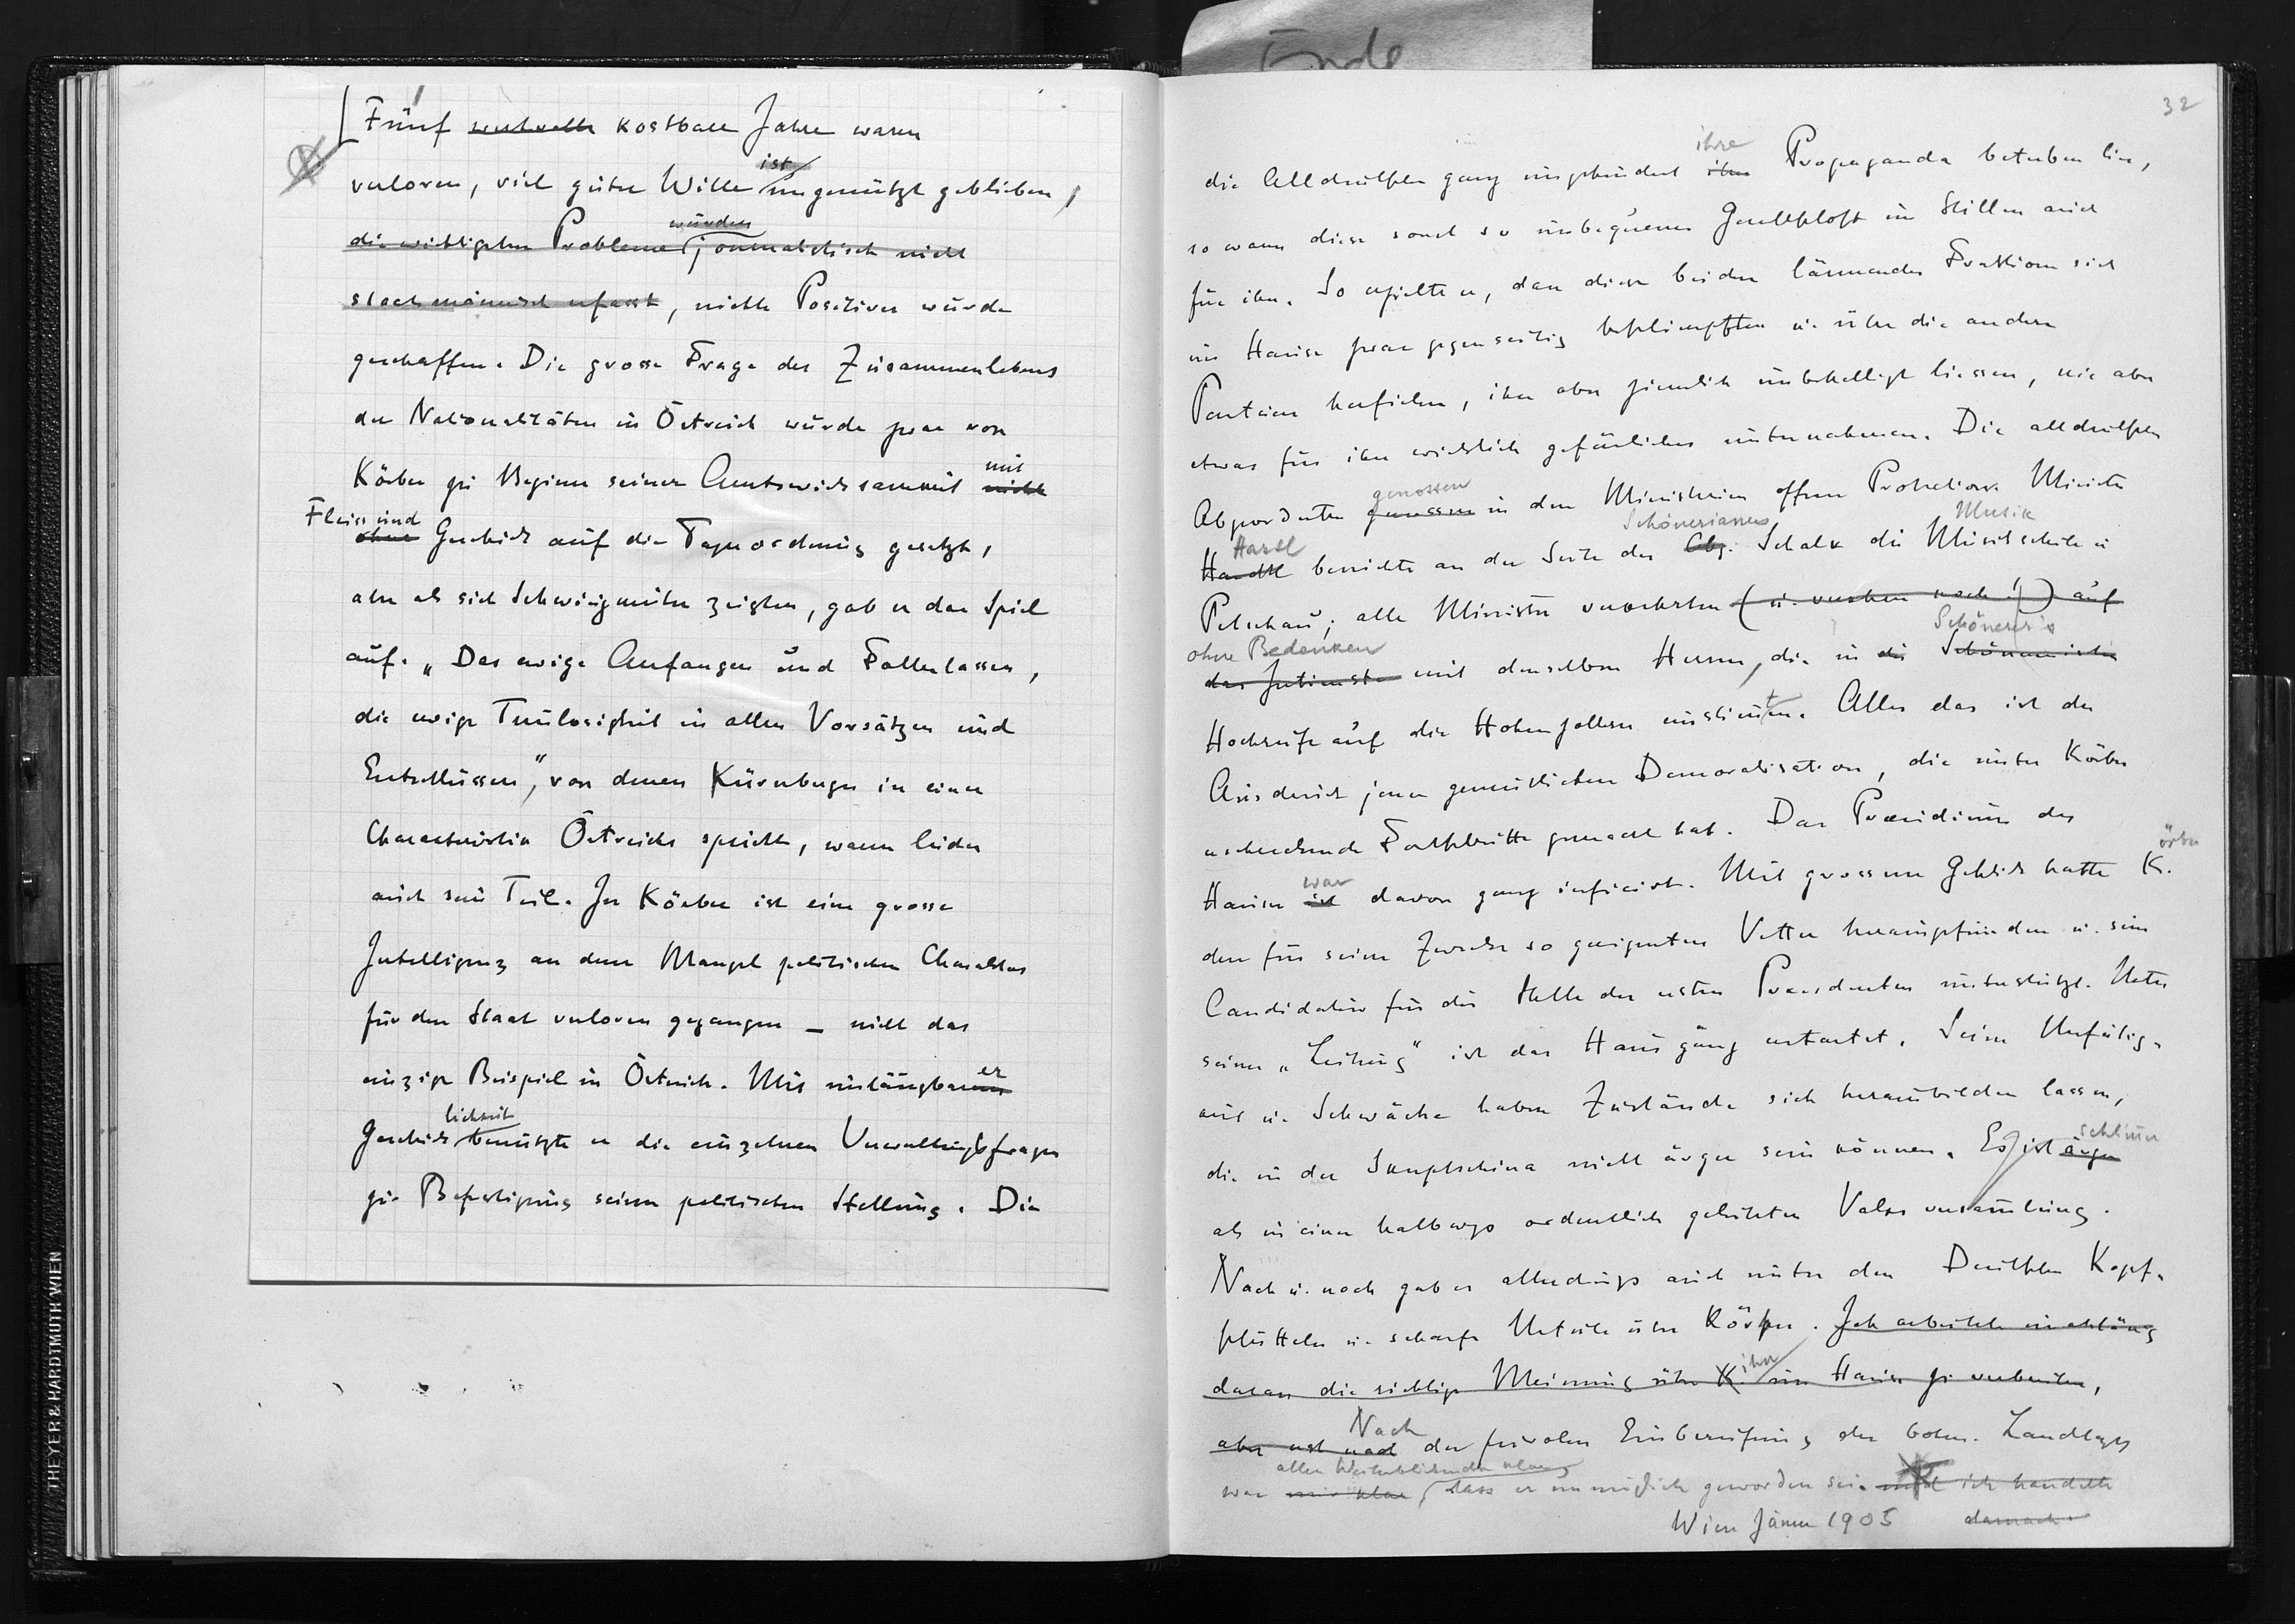 Ende
32
[Fünf wertvolle kostbare Jahre waren
verloren, viel guter Wille ist ungenützt geblieben,
die wichtigsten Probleme wurden journalistisch nicht
staatsmännisch erfasst, nichts Positives wurde
geschaffen. Die grosse Frage des Zusammenlebens
der Nationalitäten in Östreich wurde zwar von
Körber zu Beginn seiner Amtswirksamkeit nicht mit
ohne Fleiss und Geschick auf die Tagesordnung gesetzt,
aber als sich Schwierigkeiten zeigten, gab er das Spiel
auf. „Das ewige Anfangen und Fallenlassen,
die ewige Treulosigkeit in allen Vorsätzen und
Entschlüssen", von denen Kürnberger in einer
Charakteristik Östreichs spricht, waren leider
auch sein Teil. In Körber ist eine grosse
Intelligenz an dem Mangel politischen Charakters
für den Staat verloren gegangen – nicht das
einzige Beispiel in Östreich. Mit unläugbarer
Geschicklichkeit benützte er die einzelnen Verwaltungsfragen
zur Befestigung seiner politischen Stellung. Die
die Alldeutschen ganz ungehindert ihre Propaganda betreiben liess,
so waren diese sonst so unbequemen Gesellschaft im Stillen auch
für ihn. So erzielte er, dass diese beiden lärmenden Fraktionen sich
im Hause zwar gegenseitig beschimpften u. über die anderen
Parteien herfielen, ihn aber ziemlich unbehelligt liessen, nie aber
etwas für ihn wirklich gefärliches unternahmen. Die alldeutschen
Abgeordneten genossen genossen in den Ministerien offene Protection. Minister
Hartel besuchte an der Seite des Abg. Schönerianers Schalk die Musik Musikschule in
Petschau; alle Minister verkehrten (u. verkehren noch!) auf
das Intimste ohne Bedenken mit denselben Herren, die in die Schönerer's
Hochrufe auf die Hohenzollern einstimmten. Alles das ist der
Ausdruck jener gemütlichen Demoralisation, die unter Körber
erschreckende Fortschritte gemacht hat. Das Præsidium des
Hauses ist war davon ganz inficirt. Mit grossem Geschick hatte Körber
den für seine Zwecke so geeigneten Vetter herausgefunden u. seine
Candidatur für die Stelle des ersten Præsidenten unterstützt. Unter
seiner „Leitung" ist das Haus gänz entartet. Seine Unfähig-
keit u. Schwäche haben Zustände sich herausbilden lassen,
die in der Skupschtina nicht ärger sein können. Es ist ärger schlimmer
als in einer halbwegs ordentlich geleiteten Volksversammlung.
Nach u. nach gab es allerdings auch unter den Deutschen Kopf-
schütteln u. scharfe Urteile über Körber. Ich arbeitete unablässig
daran die richtige Meinung über K ihn im Hause zu verbreiten,
aber erst nach Nach der frivolen Einberufung des böhm. Landtages
war mir klar allen Weiterblickenden klar, dass er unmöglich geworden sei. ich handelte
Wien Jänner 1905 darnach.